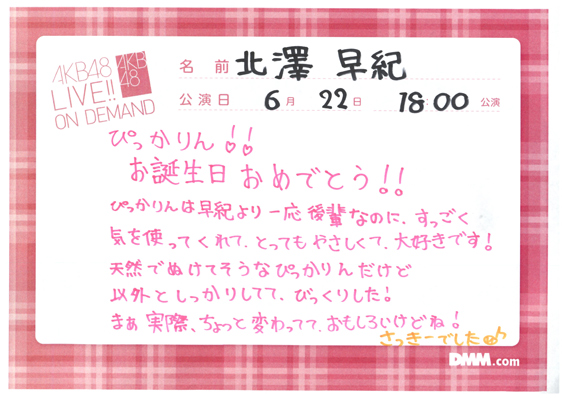 AKB48
LIVE!!
ON DEMAND
AKB
48
名前 北澤 早紀
公演日 6月 22日 18:00 公演
ぴっかりん!!
お誕生日おめでとう!!
ぴっかりんは早紀より一応後輩なのに、すっごく
気を使ってくれて、とってもやさしくて、大好きです!
天然でぬけてそうなぴっかりんだけど
以外としっかりしてて、びっくりした!
まぁ実際、ちょっと変わってて、おもしろいけどね!
さっきーでした
DMM.com